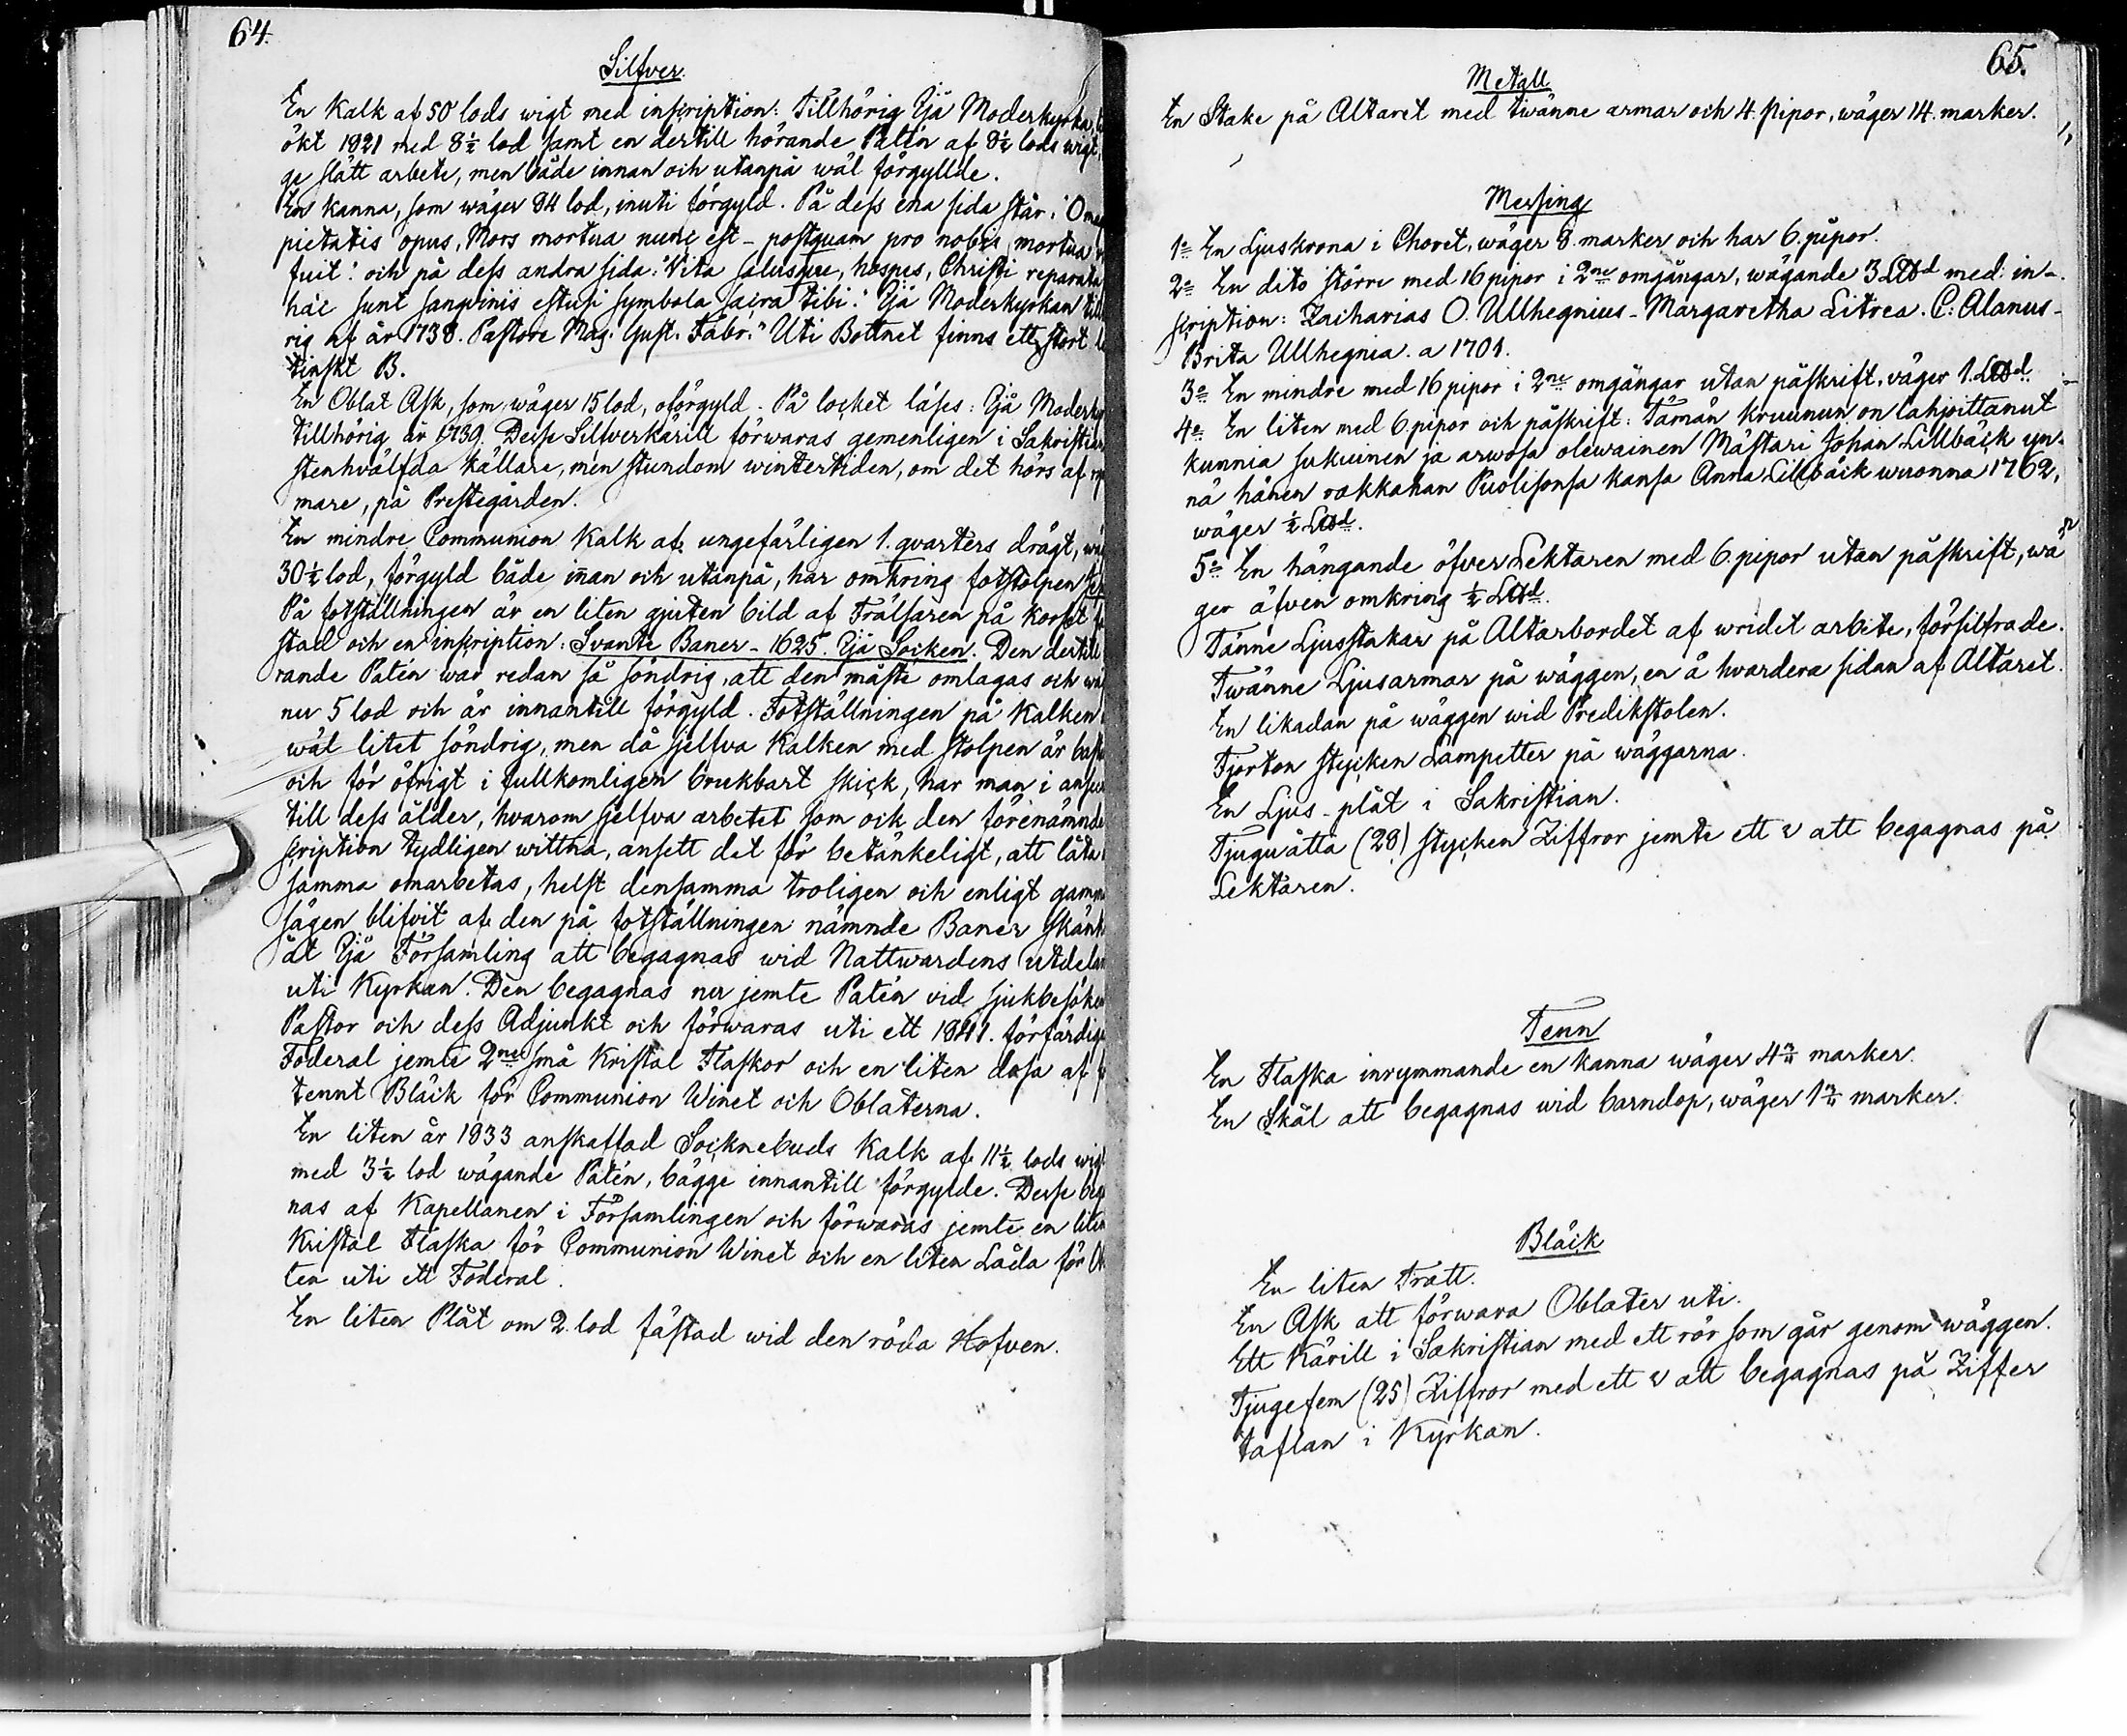 64.
Silfver.
En Kalk af 50 lods wigt med inscription: Tillhörig Yjä Moderkyrka,
ökt 1821 med 8½ lod samt en dertill hörande Patén af 8½ lods wigt,
ge slätt arbete, men både innan och utanpå wäl förgyllde.
En kanna, som wäger 84 lod, inuti förgyld. På dess ena sida står: "O
pietatis opus, Mors mortua nunc est - postquam pro nobis mortua
fuit." och på dess andra sida: "Vita salusque, hospes, Christi reparata
häc sunt sangvinis effusi symbola sacra tibi." Yjä Moderkyrkan
rig af år 1738. Pastore Mag. Gust. Fabr." Uti Bottnet finns ett stort
tinskt B.
En Oblat Ask, som wäger 15 lod, oförgyld. På locket läses: Yjä
tillhörig år 1739. Desse Silfverkärill förwaras gemenligen i
stenhvälfda källare, men stundom wintertiden, om det hörs af
mare, på Prestegården.
En mindre Communion Kalk af ungefärligen 1. qvarters drägt,
30½ lod, förgyld både innan och utanpå, har omkring fotstolpen
På fotställningen är en liten gjuten bild af Frälsaren på korset
stad och en inscription: Svante Baner - 1625. Yjä Socken. Den dertill
rande Patén war redan så söndrig, att den måste omlagas och
nu 5 lod och är innantill förgyld. Fotställningen på Kalken
wäl litet söndrig, men då sjelfva Kalken med stolpen är
och för öfrigt i fullkomligen brukbart skick, har man i
till dess ålder, hvarom sjelfva arbetet som ock den förenämnde
scription tydligen wittna, ansett det för betänkeligt, att låta
samma omarbetas, helst densamma troligen och enligt
sägen blifvit af den på fotställningen nämnde Baner
åt Yjä Församling att begagnas wid Nattwardens
uti Kyrkan. Den begagnas nu jemte Patén vid
Pastor och dess Adjunkt och förwaras uti ett 1841.
Foderal jemte 2ne små Kristal Flaskor och en liten dosa af
tennt Bläck för Communion Winet och Oblaterna.
En liten år 1833 anskaffad Socknebuds Kalk af 11½ lods
med 3½ lod wägande Patén, bägge innantill förgylde. Desse
nas af Kapellanen i Församlingen och förwaras jemte en liten
Kristal Flaska för Communion Winet och en liten Låda för
ten uti ett Foderal.
En liten Plåt om 2 lod fästad wid den röda Hofven.
65.
Metall
En Stake på Altaret med twänne armar och 4. pipor, wäger 14. marker.
Messing
1o En Ljuskrona i Choret, wäger 8. marker och har 6. pipor.
2o En dito större med 16 pipor i 2ne omgångar, wägande 3 L℔d med in-
scription: Zacharias O. Ullhegnius - Margaretha Litrea. C: Alanus -
Brita Ullhegnia. a 1701.
3o En mindre med 16 pipor i 2ne omgångar utan påskrift, väger 1. L℔d
4o En liten med 6 pipor och påskrift: Tämän kruunun on lahjoittanut
kunnia sukuinen ja arwosa olewainen Mästare Johan Lillbäck yn-
nä hänen rakkahan Puolisonsa kansa Anna Lillbäck wuonna 1762,
wäger ½ L℔d.
5o En hängande öfver Lektaren med 6. pipor utan påskrift, wä
ger äfven omkring ½ L℔d.
Tänne Ljusstakar på Altarbordet af wridet arbete, försilfrade.
Twänne Ljusarmar på wäggen, en å hvardera sidan af Altaret.
En likadan på wäggen wid Predikstolen.
Fjorton stycken Lampetter på wäggarna.
En Ljus-plåt i Sakristian.
Tjuguåtta (28) stycken Ziffror jemte ett v att begagnas på
Lektaren.
Tenn
En Flaska inrymmande en kanna wäger 4¾ marker.
En Skål att begagnas wid barndop, wäger 1¾ marker.
Bläck
En liten Tratt.
En Ask att förwara Oblater uti.
Ett Kärill i Sakristian med ett rör som går genom wäggen.
Tjugefem (25) Ziffror med ett v att begagnas på Ziffer
taflan i Kyrkan.